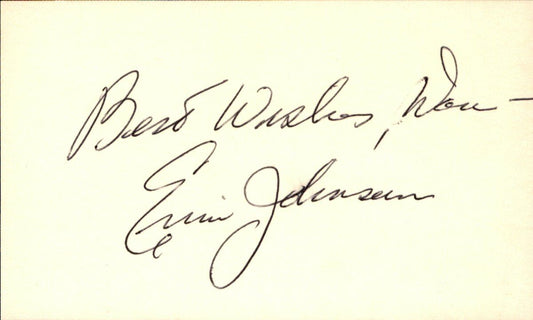 Best Wishes, Don –
Ernie Johnson